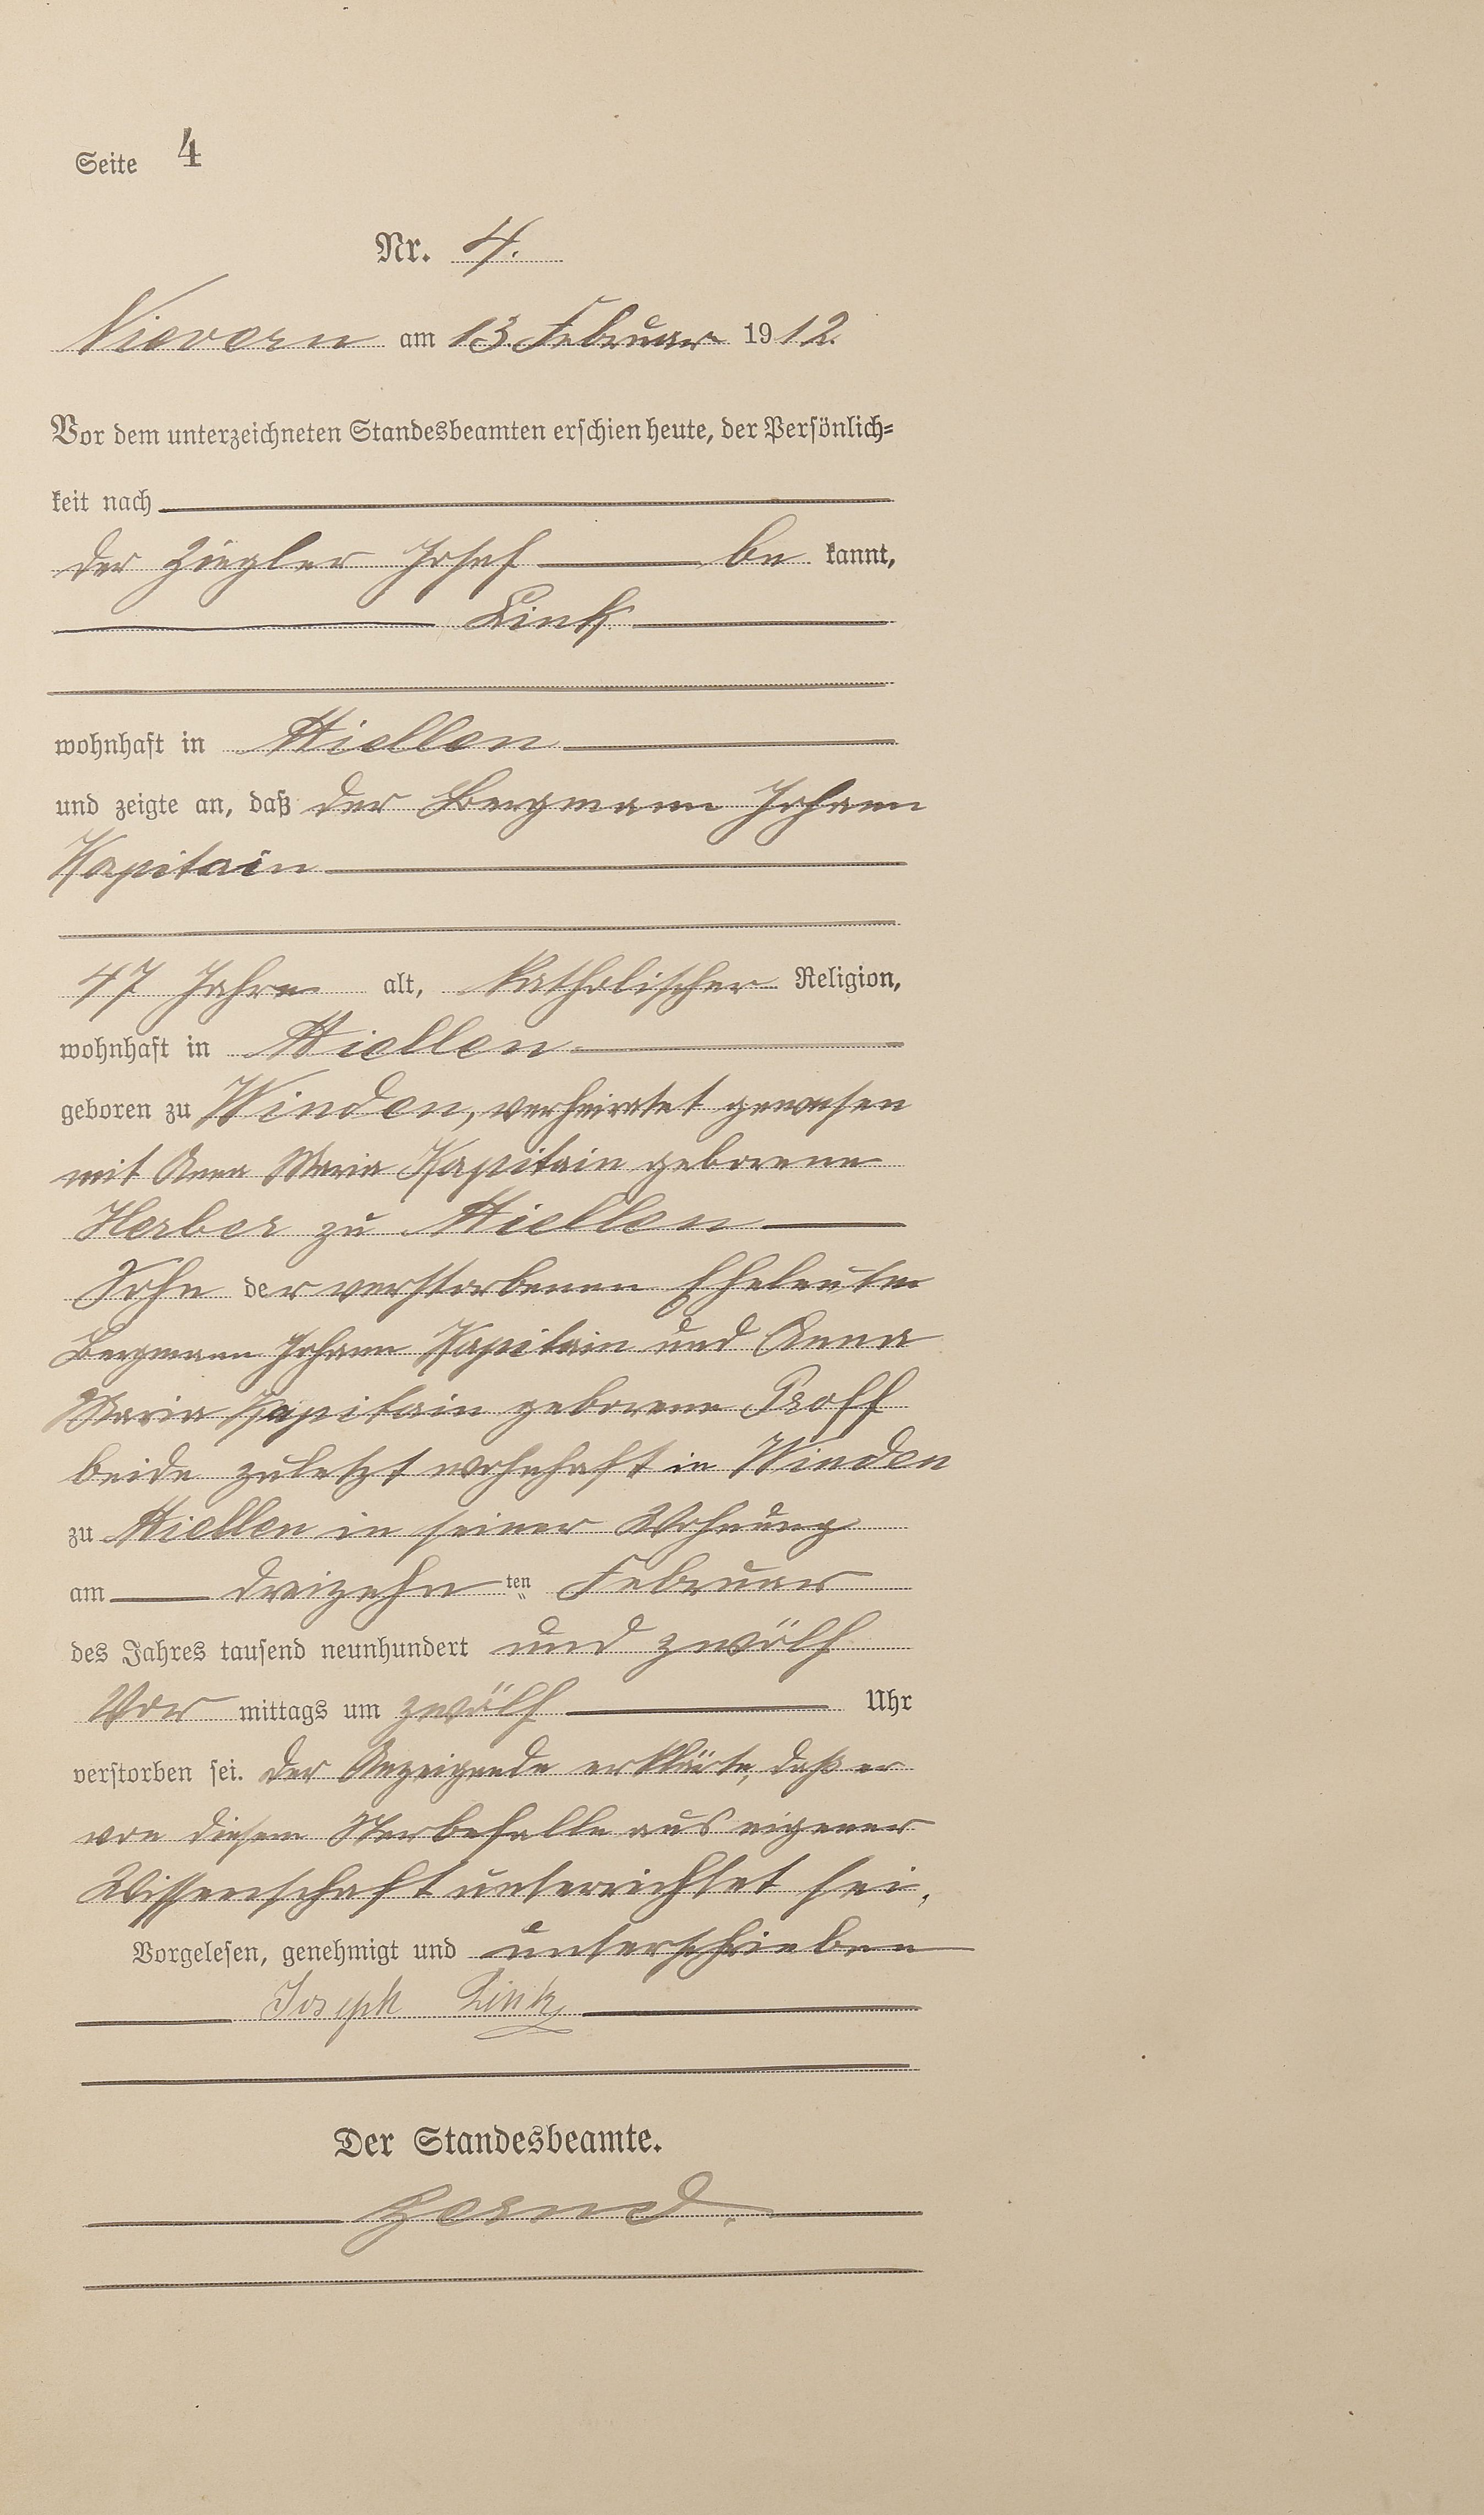 Seite 4
Nr. 4.
Nievern am 13. Februar 1912.
Vor dem unterzeichneten Standesbeamten erschien heute, der Persönlich=
keit nach
der Ziegler Josef be kannt,
Link
wohnhaft in Miellen
und zeigte an, daß der Bergmann Johann
Kapitain
47 Jahre alt, katholischer Religion,
wohnhaft in Miellen
geboren zu Winden, verheiratet gewesen
mit Anna Maria Kapitain geborene
Herber zu Miellen
Sohn der verstorbenen Eheleute
Bergmann Johann Kapitain und Anna
Maria Kapitain geborene Proff
beide zuletzt wohnhaft in Winden
zu Miellen in seiner Wohnung
am dreizehn ten Februar
des Jahres tausend neunhundert und zwölf
Vor mittags um zwölf Uhr
verstorben sei. Der Anzeigende erklärte, daß er
von diesem Sterbefalle aus eigener
Wissenschaft unterrichtet sei.
Vorgelesen, genehmigt und unterschrieben
Joseph Link
Der Standesbeamte.